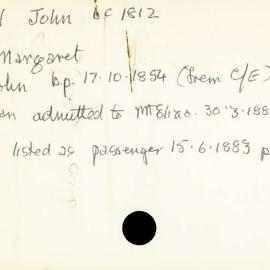 John bc 1812
Margaret
ohn bp. 17.10.1854 (Irem C/E)
an admitted to Mt Eliza. 30.3.188
listed as passenger 15.6.1883 p